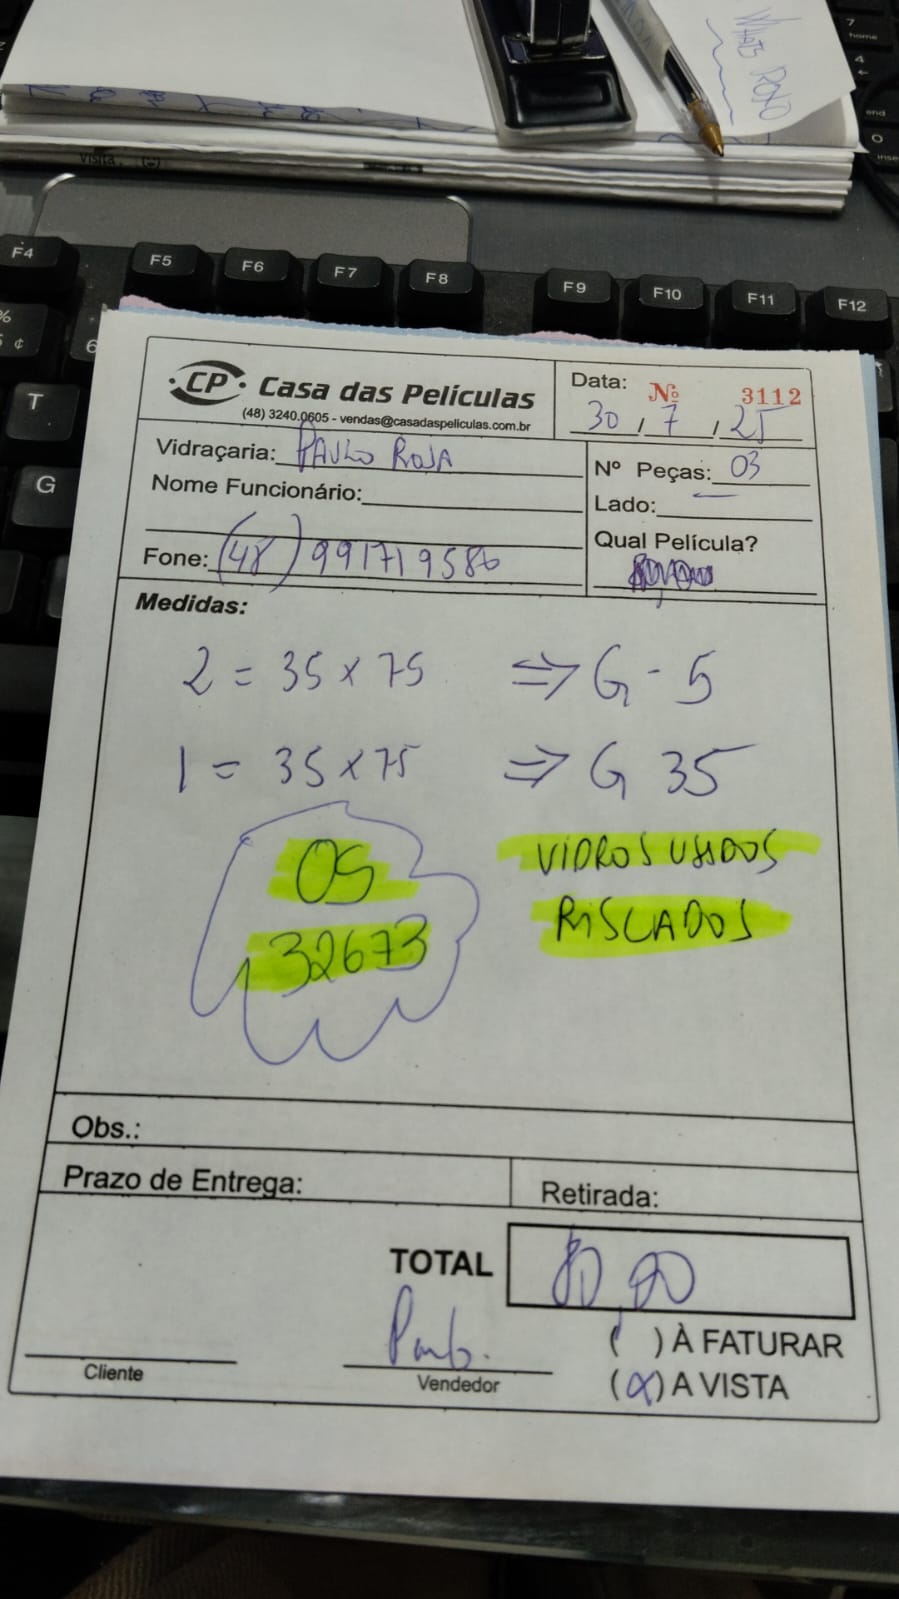 WHATS ROXO
Visita.
7
home
4
end
0
inse
F4
F5
F6
F7
F8
F9
F10
F11
F12
%
5 ¢
6
T
G
CP Casa das Películas
(48) 3240.0605 - vendas@casadaspeliculas.com.br
Data: Nº 3112
30 / 7 / 25
Vidraçaria: PAULO ROSA
Nº Peças: 03
Nome Funcionário:
Lado:
Qual Película?
Fone: (48) 991719586
Medidas:
2 = 35 x 75 ⇒ G - 5
1 = 35 x 75 ⇒ G 35
OS
32673
VIDROS USADOS
RISCADOS
Obs.:
Prazo de Entrega:
Retirada:
TOTAL 80,00
( ) À FATURAR
(X) A VISTA
Cliente
Vendedor